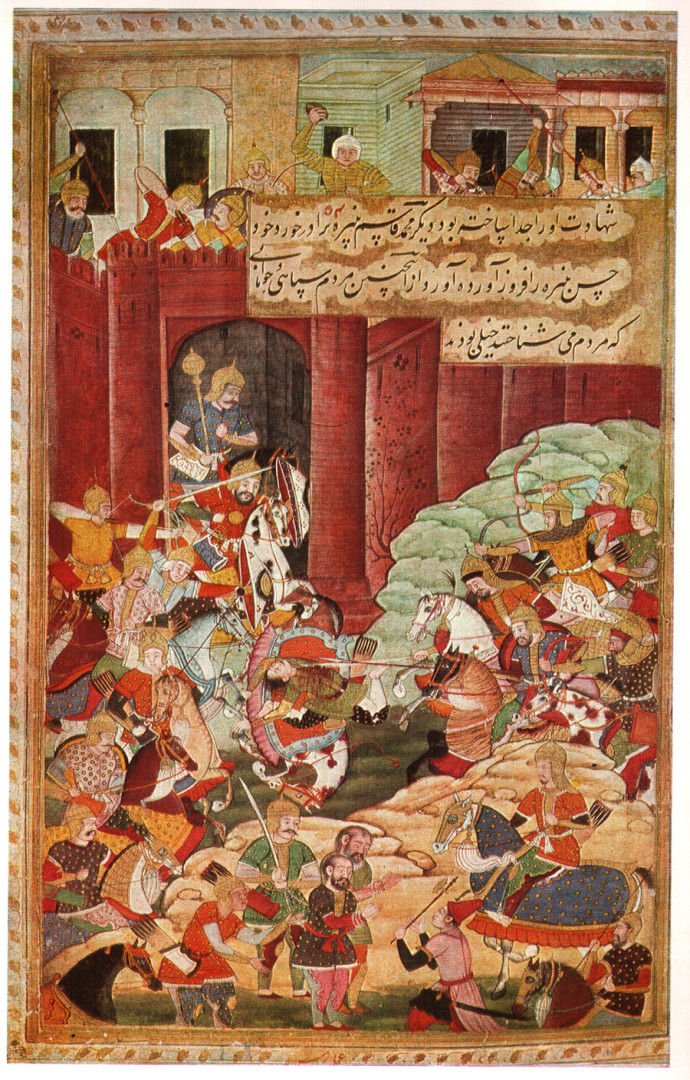 شهادت او را جدا ساخته بود دیگر محمد قاسم نبیره برادر خورد خود
حسن نبیره را فرود آورده آورد از اینچنین مردم سپاهی جوانهای
که مردم می شناختند خیلی بودند